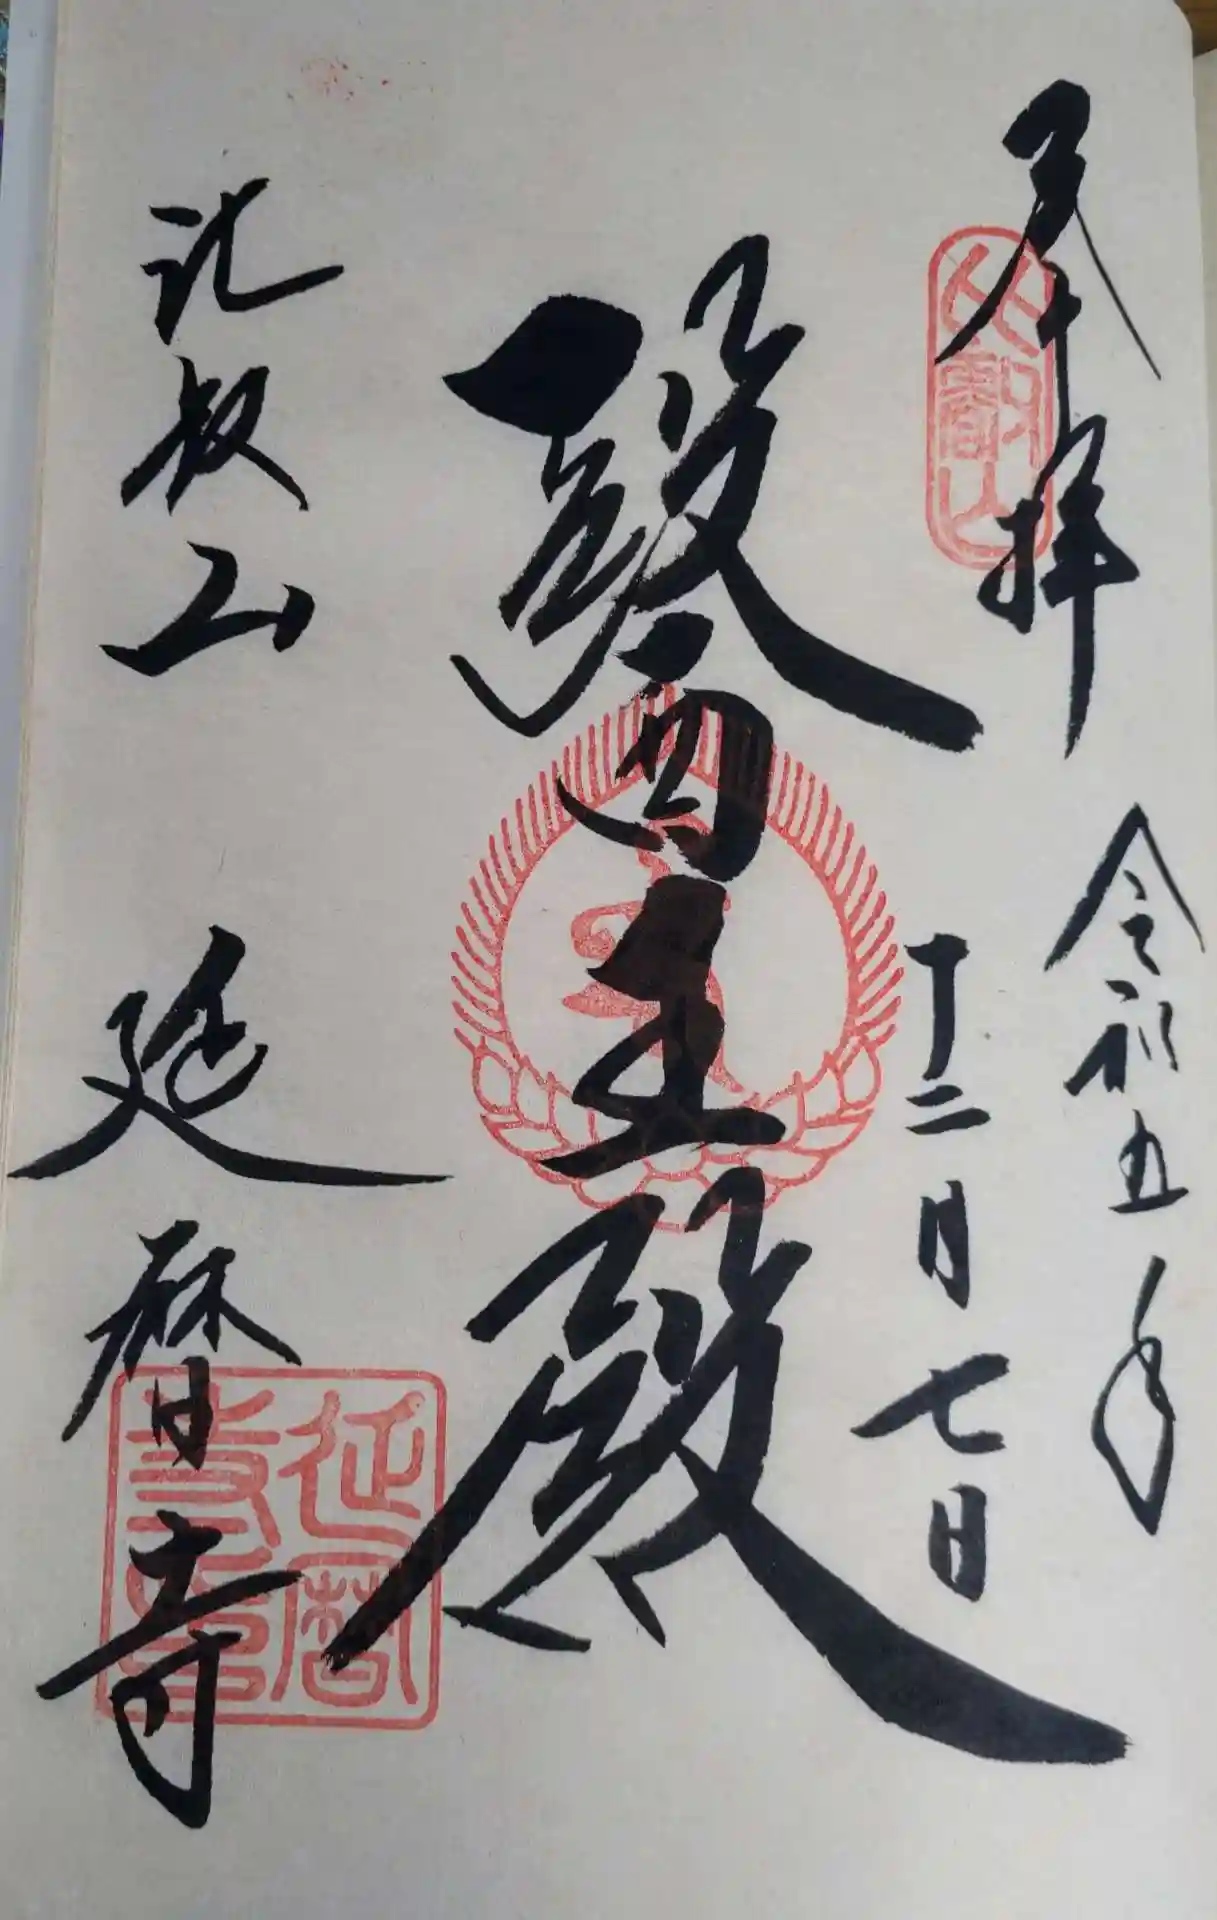 奉拝
令和五年
十二月七日
醫王殿
比叡山
延暦寺
比叡山
延暦寺印